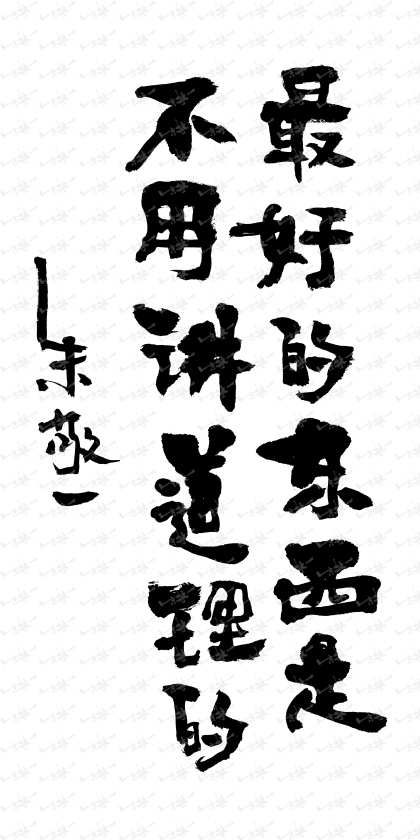 最好的东西是
不用讲道理的
—朱敬一